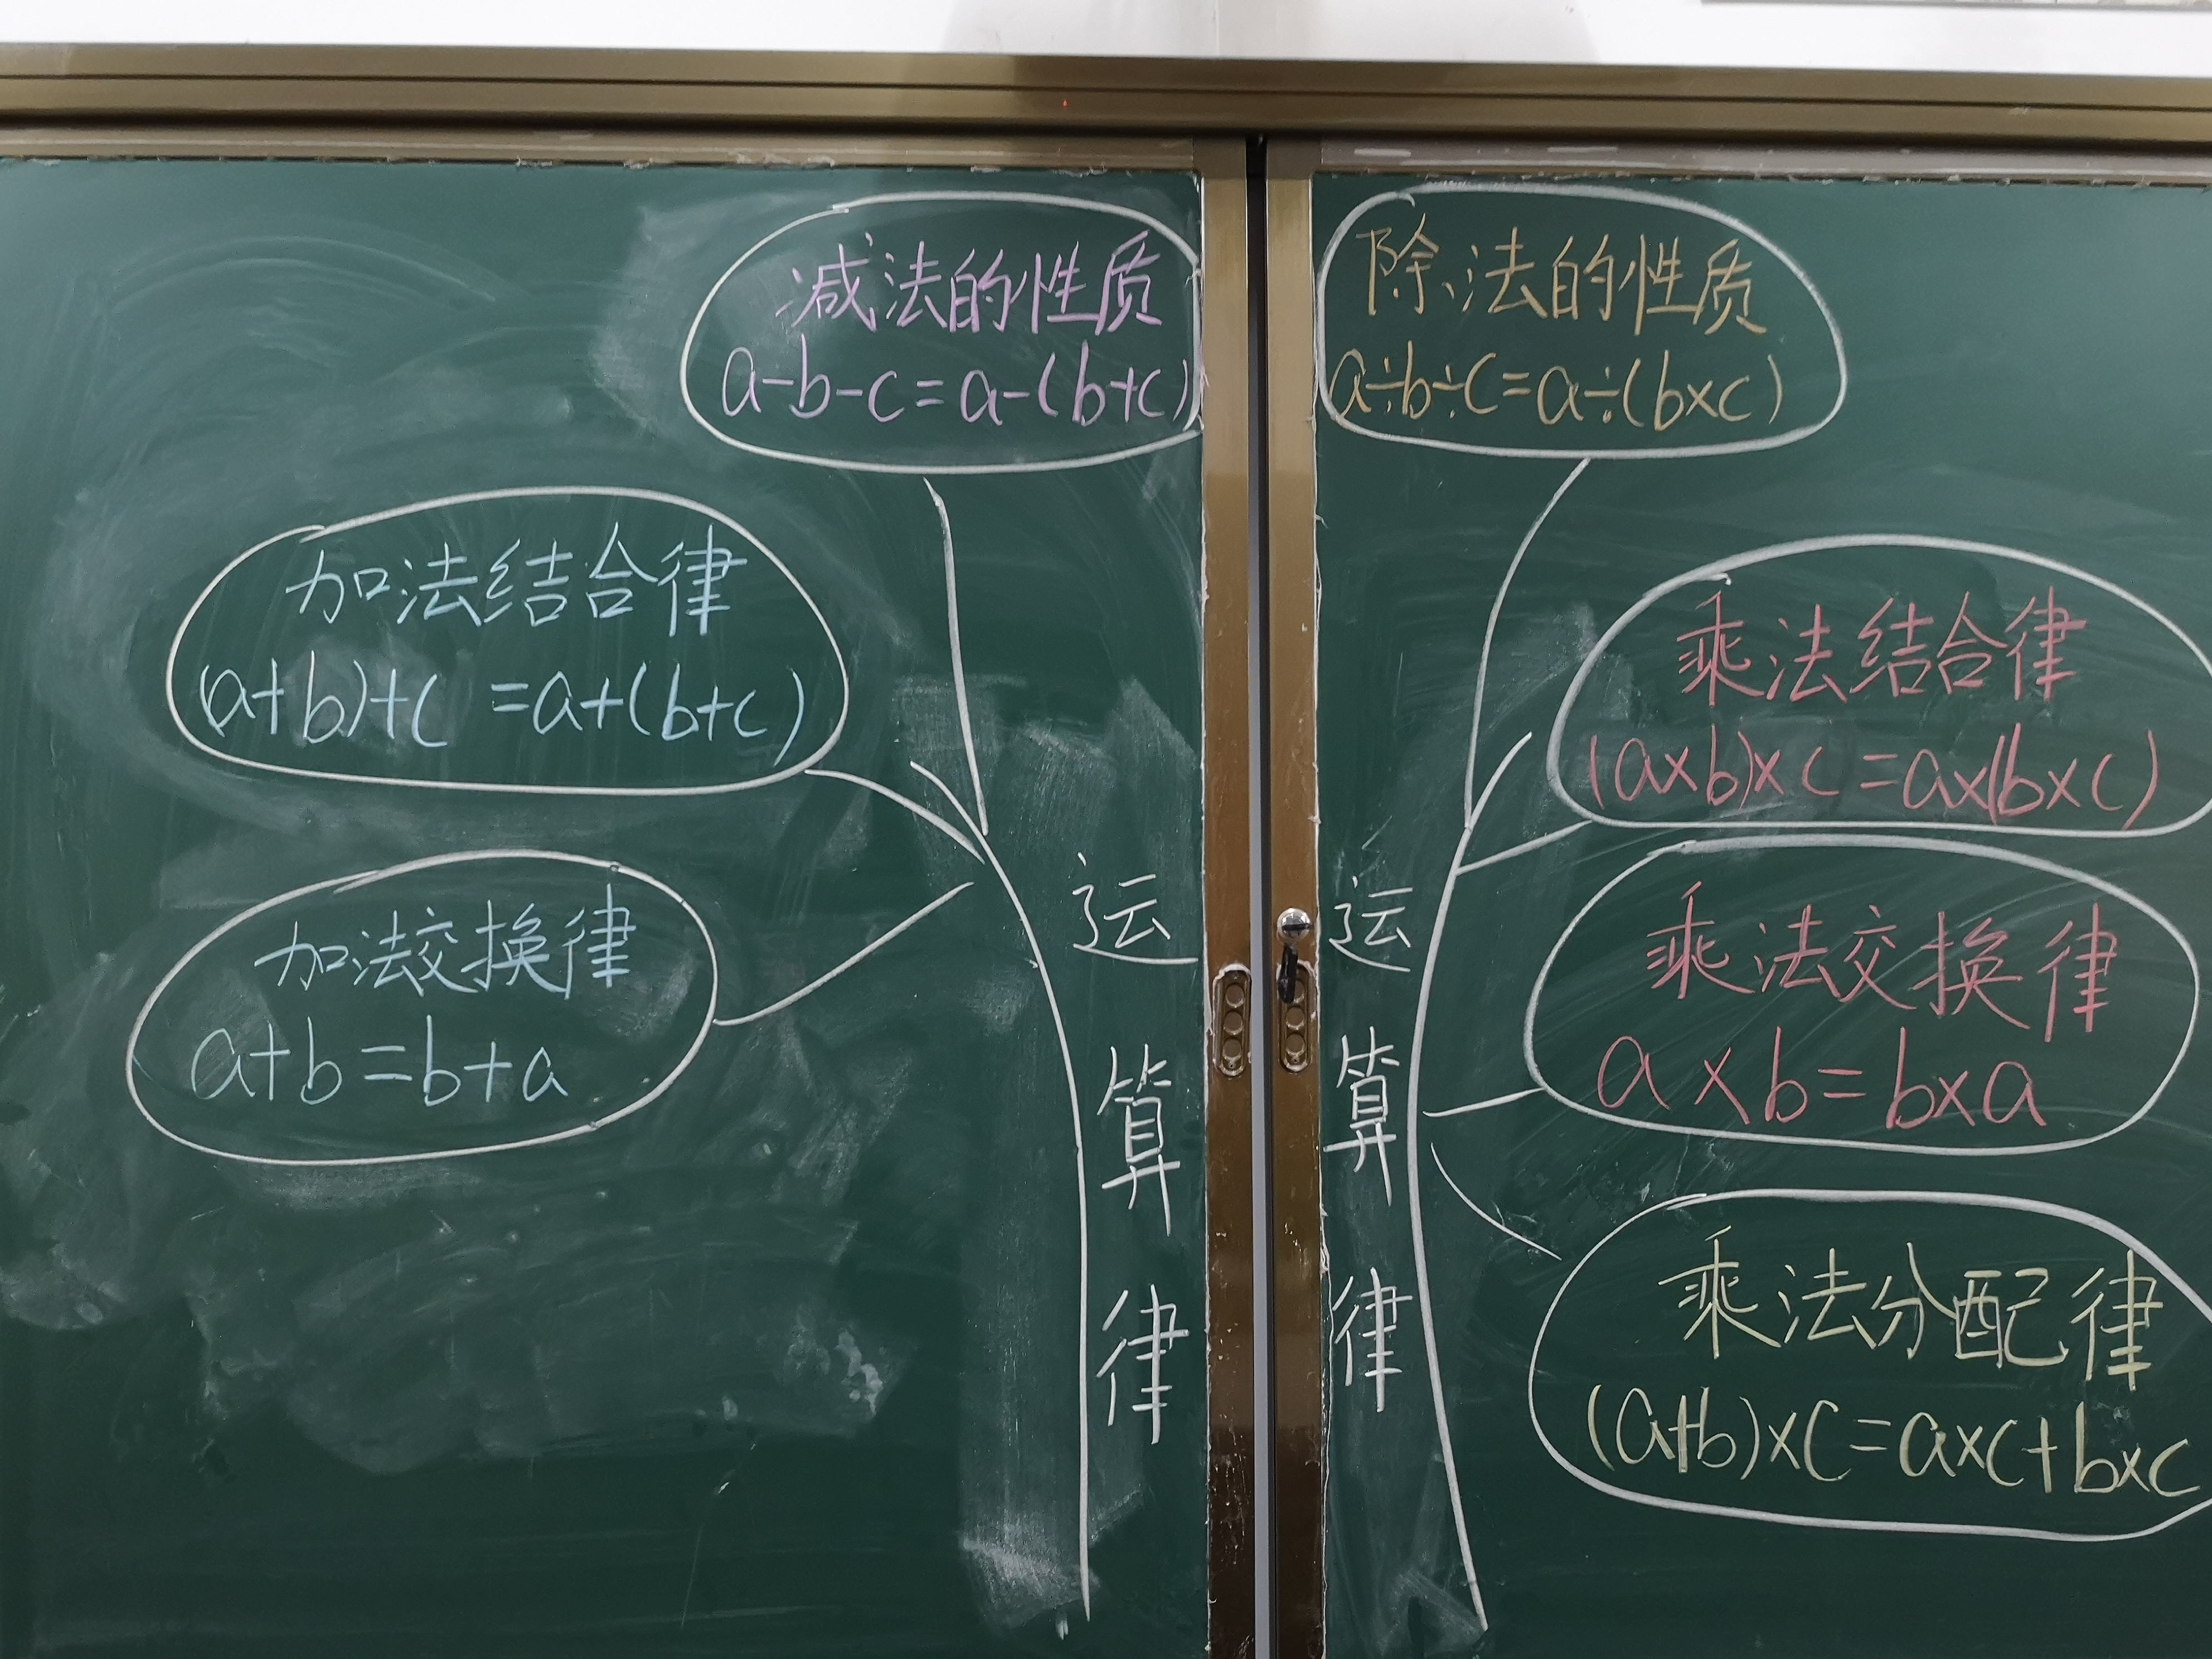 减法的性质
a-b-c=a-(b+c)
加法结合律
(a+b)+c =a+(b+c)
加法交换律
a+b=b+a
运
算
律
除法的性质
a÷b÷c=a÷(b×c)
乘法结合律
(a×b)×c=a×(b×c)
乘法交换律
a×b=b×a
乘法分配律
(a+b)×c=a×c+b×c
运
算
律